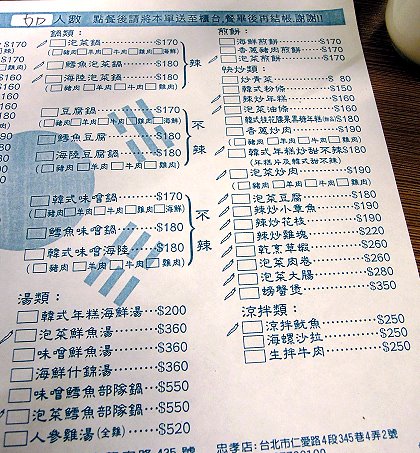 人數 點餐後請將本單送至櫃台,餐畢後再結帳,謝謝!!
鍋類：
泡菜鍋 $170
(豬肉 羊肉 牛肉 雞肉 海鮮)
鱈魚泡菜鍋 $180
海陸泡菜鍋 $180
(豬肉 羊肉 牛肉 雞肉)
辣
豆腐鍋 $170
(豬肉 羊肉 牛肉 雞肉 海鮮)
鱈魚豆腐 $180
海陸豆腐鍋 $180
(豬肉 羊肉 牛肉 雞肉)
不辣
韓式味噌鍋 $170
(豬肉 羊肉 牛肉 雞肉 海鮮)
鱈魚味噌鍋 $180
韓式味噌海陸 $180
(豬肉 羊肉 牛肉 雞肉)
不辣
湯類：
韓式年糕海鮮湯 $200
泡菜鮮魚湯 $360
味噌鮮魚湯 $360
海鮮什錦湯 $360
味噌鱈魚部隊鍋 $550
泡菜鱈魚部隊鍋 $550
人參雞湯(全雞) $520
煎餅：
海鮮煎餅 $170
香蔥豬肉煎餅 $170
快炒類：
炒青菜 $ 80
韓式炒粉條 $150
辣炒年糕 $160
泡菜油條 $160
$180
香蔥炒肉 $190
(豬肉 羊肉 牛肉 雞肉)
韓式年糕炒甜不辣 $180
(年糕片及韓式甜不辣)
泡菜炒肉 $160
(豬肉 羊肉 牛肉 雞肉)
泡菜豆腐 $180
辣炒小章魚 $190
辣炒花枝 $190
辣炒雞塊 $220
乾烹草蝦 $260
泡菜肉卷 $260
泡菜大腸 $280
螃蟹煲 $350
涼拌類：
涼拌魷魚 $250
海螺沙拉 $250
生拌牛肉 $250
忠孝店：台北市仁愛路4段345巷4弄2號